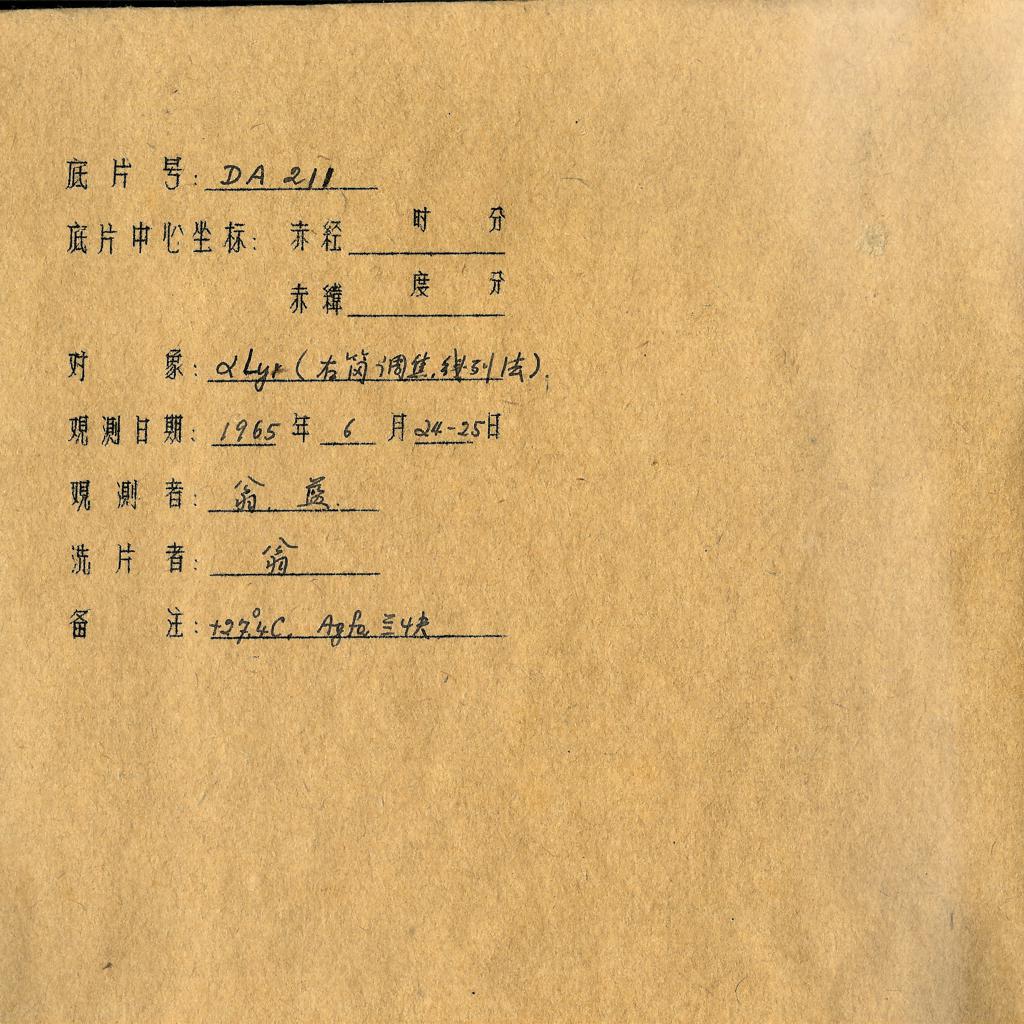 底片号: DA 211
底片中心坐标: 赤经 时 分
赤緯 度 分
对象: αLyr (右筒调焦, 线列法).
观测日期: 1965 年 6 月 24-25日
观测者: 翁. 蓝.
洗片者: 翁
备注: +27.°4C. Agfa 三4夹